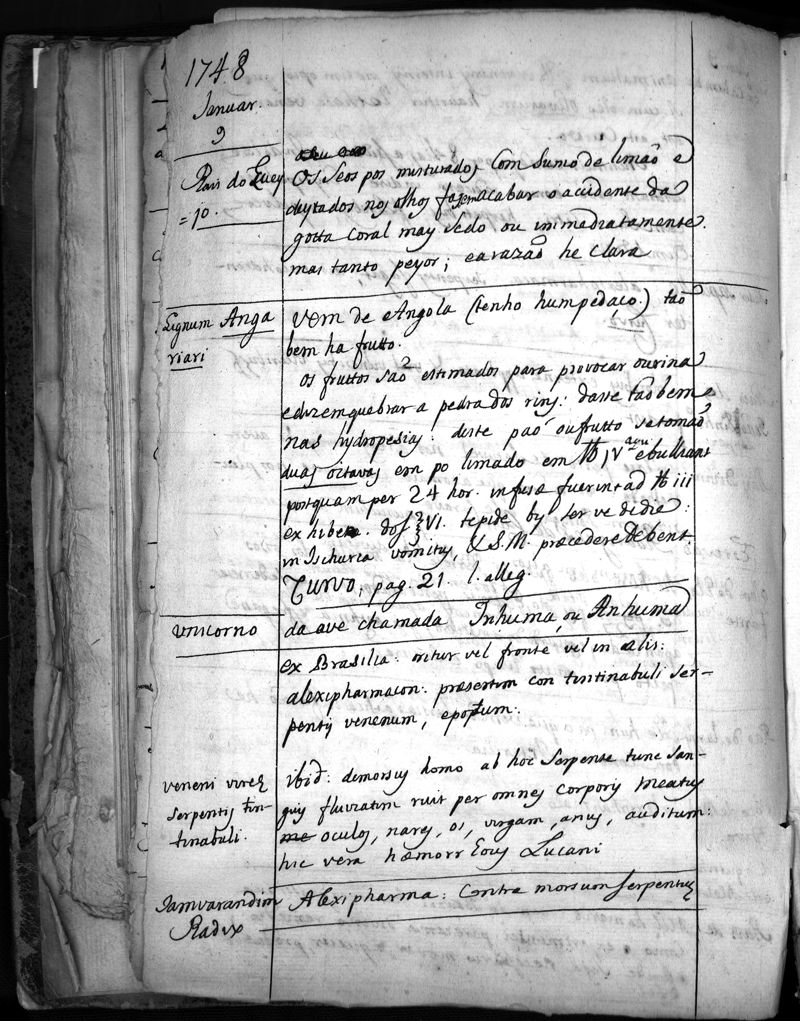 1748
Januar.
9
Rais do Quey
= jo.
Os Seos pos misturados Com Sumo de limaõ e
deytados nos olhos fazem acabar o accidente da
gotta Coral may sedo ou immediatamente.
mas tanto peyor; earazaõ he clara
Lignum Anga
riari
vem de Angola (tenho humpedaço.) taõ
bem ha frutto.
os fruttos saõ estimados para provocar ourina
edizemquebrar a pedra dos rins: dasse taõ bem
nas hydropesias: deste paó ou frutto se tomaõ
duas oitavas em po limado em ℔ jv aqu ebulliant
postquam per 24 hor. infusa fuerint ad ℔ iii
exhibe. dos ℥VI. tepide by ter ve die:
in Ischuria vomitus, & S.M. præcedere debent.
Curvo, pag. 21. l. alleg.
Unicorno
da ave chamada Inhuma, ou Anhuma
ex Brasilia: oritur vel fronte, vel in alis:
alexipharmacon: præsertim con tintinabuli ser-
pentis venenum, epotum:
veneni vires
serpentis tin-
tinabuli.
ibid: demorsus homo ab hoc serpente tunc san-
guis fluviatim ruit per omnes corporis meatus
oculos, nares, os, virgam, anus, auditum:
hic vera hæmorr Eous Lucani
Jamvarandim
Radix
Alexipharma: Contra morsum serpentis